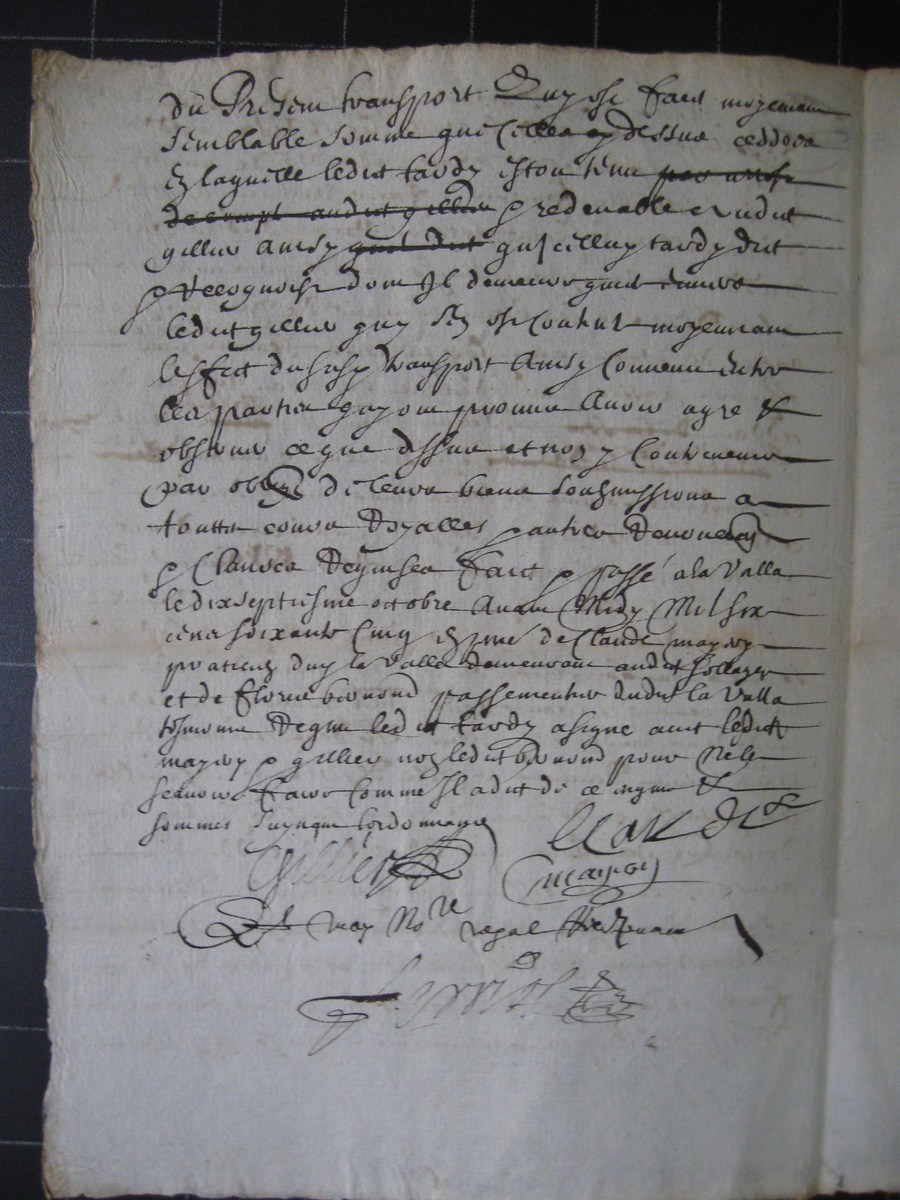 du present transport quy est faict moyenant
semblable somme que celle cy dessus ceddee
en laquelle ledict tardy estoit tenu
redepvable audict
gillier ainsy qu'icelluy tardy dict
& recognoist dont Il demeure quicte envers
ledict gillier quy s'en est contenté moyennant
l'effect du susd transport Ainsy convenu entre
les parties quy ont promis Avoir agre &
observer ce que dessus et non y contrevenir
par oblig de leurs biens soubzmissions a
touttes cours Royalles & autres Renon
& Clauses Requises faict & passé a la Valla
le dix septiesme octobre Avant Midy Mil six
cens soixante cinq en pnce de Claude mayosy
praticien du la Valla demeurant audict
et de fleurie passementier dudict la Valla
tesmoins Requis led tardy a signe avec ledict
& gillier non ledict pour ne le
scavoir faire comme Il a dict de ce enquis &
sommes suyvant l'ordonnance
gillier
Et moy Nore royal